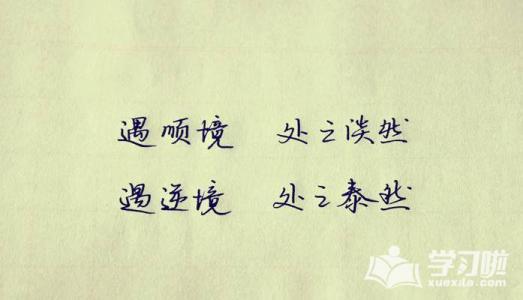 遇顺境 处之淡然
遇逆境 处之泰然
学习啦
xuexila.com